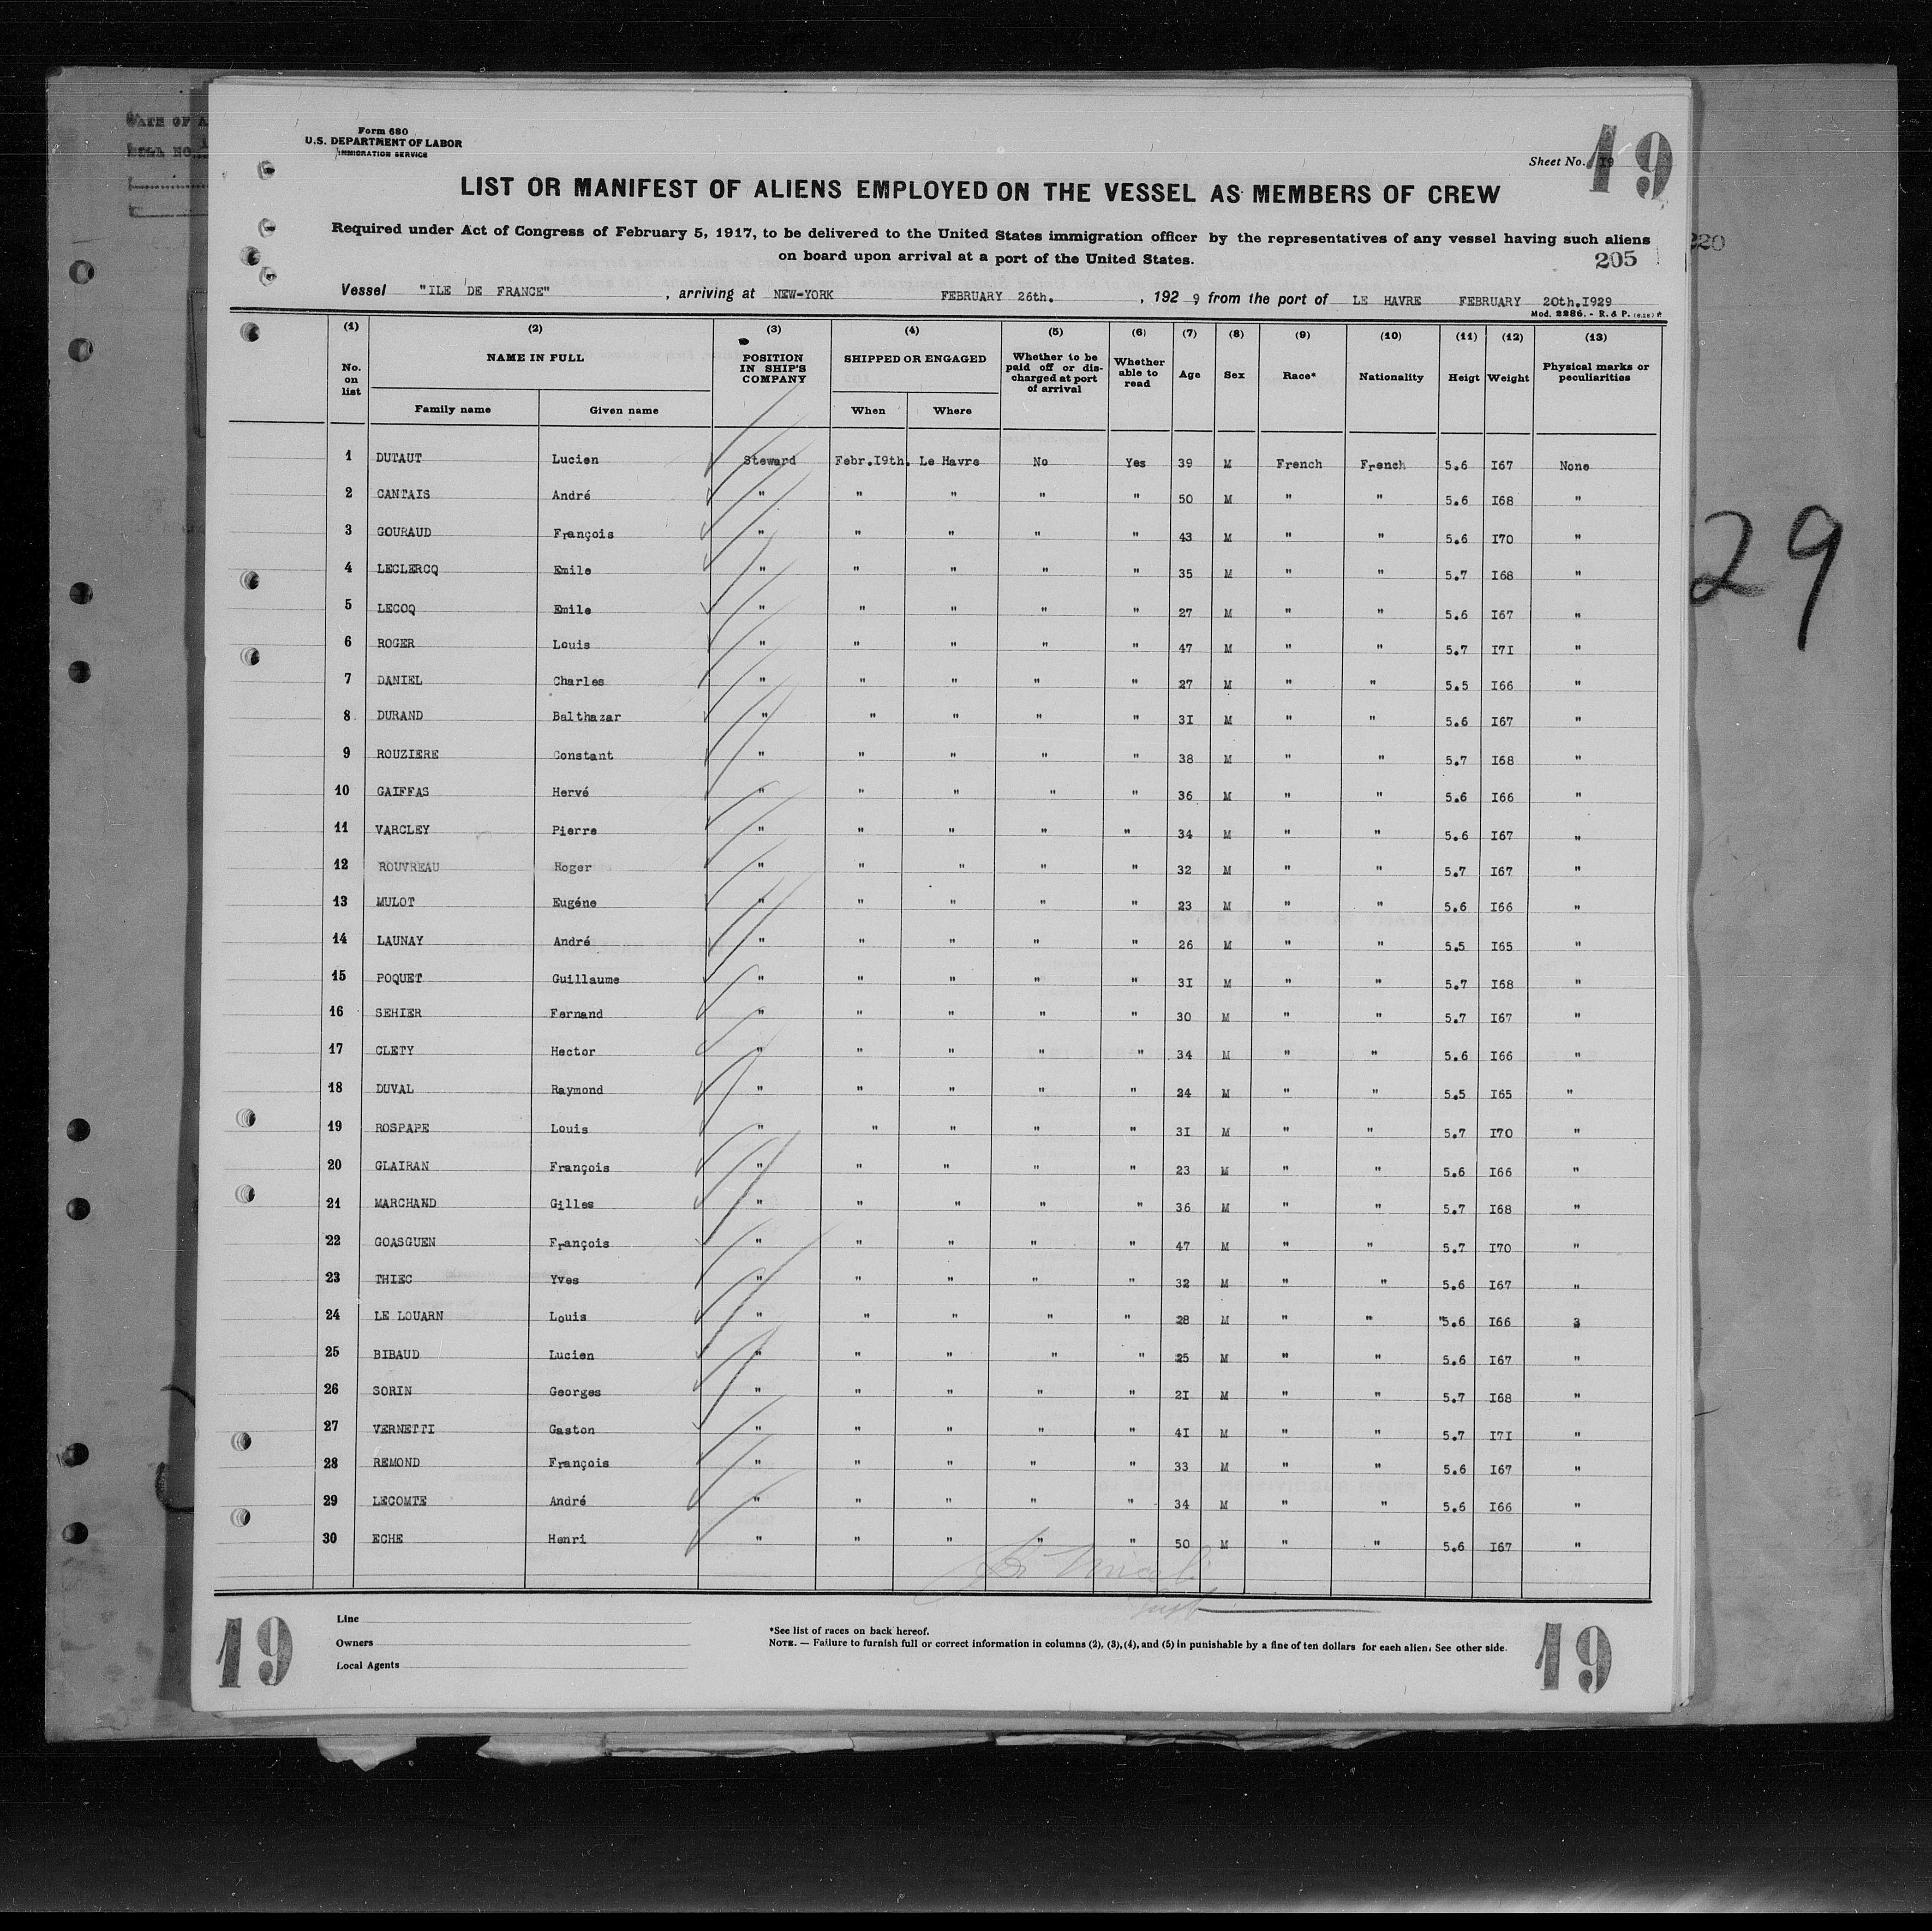 Form 680
U.S. DEPARTMENT OF LABOR
IMMIGRATION SERVICE
Sheet No. 19
19
LIST OR MANIFEST OF ALIENS EMPLOYED ON THE VESSEL AS MEMBERS OF CREW
Required under Act of Congress of February 5, 1917, to be delivered to the United States immigration officer by the representatives of any vessel having such aliens
on board upon arrival at a port of the United States.
205
220
Vessel "ILE DE FRANCE", arriving at NEW-YORK FEBRUARY 26th., 192 9 from the port of LE HAVRE FEBRUARY 20th.I929
Mod. 2286. - R. & P.
(1) (2) (3) (4) (5) (6) (7) (8) (9) (10) (11) (12) (13)
No. on list NAME IN FULL Family name Given name POSITION IN SHIP'S COMPANY SHIPPED OR ENGAGED When Where Whether to be paid off or discharged at port of arrival Whether able to read Age Sex Race* Nationality Heigt Weight Physical marks or peculiarities
1 DUTAUT Lucien Steward Febr.I9th. Le Havre No Yes 39 M French French 5.6 I67 None
2 CANTAIS André " " " " " 50 M " " 5.6 I68 "
3 GOURAUD François " " " " " 43 M " " 5.6 I70 "
4 LECLERCQ Emile " " " " " 35 M " " 5.7 I68 "
5 LECOQ Emile " " " " " 27 M " " 5.6 I67 "
6 ROGER Louis " " " " " 47 M " " 5.7 I7I "
7 DANIEL Charles " " " " " 27 M " " 5.5 I66 "
8 DURAND Balthazar " " " " " 3I M " " 5.6 I67 "
9 ROUZIERE Constant " " " " " 38 M " " 5.7 I68 "
10 GAIFFAS Hervé " " " " " 36 M " " 5.6 I66 "
11 VARCLEY Pierre " " " " " 34 M " " 5.6 I67 "
12 ROUVREAU Roger " " " " " 32 M " " 5.7 I67 "
13 MULOT Eugéne " " " " " 23 M " " 5.6 I66 "
14 LAUNAY André " " " " " 26 M " " 5.5 I65 "
15 POQUET Guillaume " " " " " 3I M " " 5.7 I68 "
16 SEHIER Fernand " " " " " 30 M " " 5.7 I67 "
17 CLETY Hector " " " " " 34 M " " 5.6 I66 "
18 DUVAL Raymond " " " " " 24 M " " 5.5 I65 "
19 ROSPAPE Louis " " " " " 3I M " " 5.7 I70 "
20 GLAIRAN François " " " " " 23 M " " 5.6 I66 "
21 MARCHAND Gilles " " " " " 36 M " " 5.7 I68 "
22 GOASGUEN François " " " " " 47 M " " 5.7 I70 "
23 THIEC Yves " " " " " 32 M " " 5.6 I67 "
24 LE LOUARN Louis " " " " " 28 M " " "5.6 I66 3
25 BIBAUD Lucien " " " " " 25 M " " 5.6 I67 "
26 SORIN Georges " " " " " 2I M " " 5.7 I68 "
27 VERNETTI Gaston " " " " " 4I M " " 5.7 I7I "
28 REMOND François " " " " " 33 M " " 5.6 I67 "
29 LECOMTE André " " " " " 34 M " " 5.6 I66 "
30 ECHE Henri " " " " " 50 M " " 5.6 I67 "
29
Line
Owners
Local Agents
*See list of races on back hereof.
NOTE. — Failure to furnish full or correct information in columns (2), (3), (4), and (5) in punishable by a fine of ten dollars for each alien. See other side.
19
19